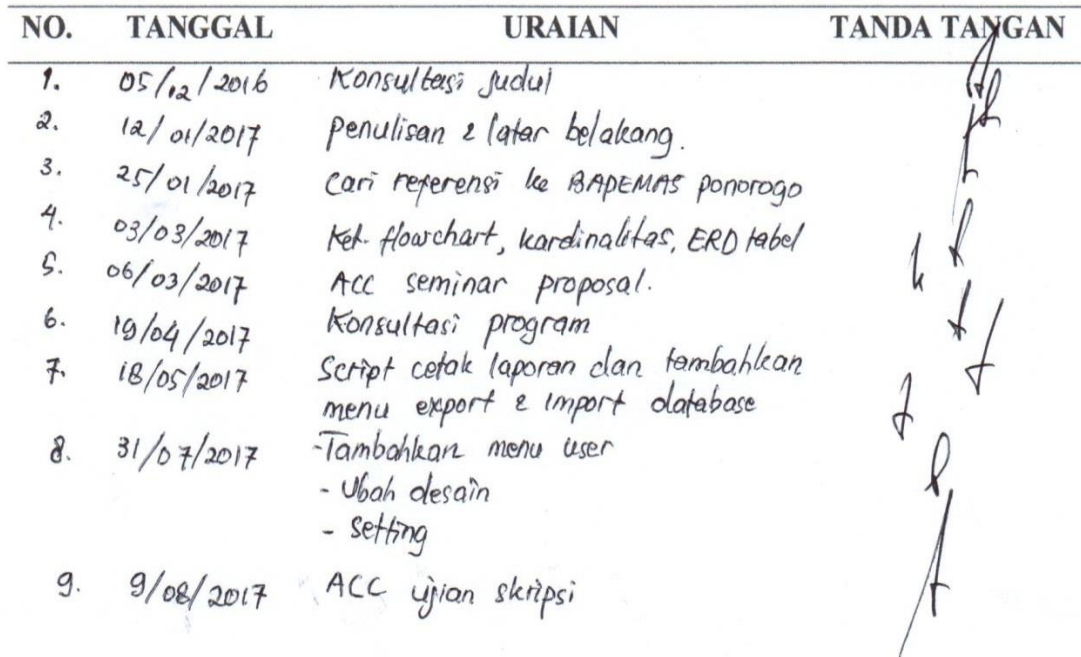 NO. TANGGAL URAIAN TANDA TANGAN
1. 05/12/2016 Konsultasi Judul
2. 12/01/2017 penulisan & latar belakang.
3. 25/01/2017 Cari referensi ke BAPEMAS ponorogo
4. 03/03/2017 Ket. flowchart, kardinalitas, ERD tabel
5. 06/03/2017 ACC seminar proposal.
6. 19/04/2017 Konsultasi program
7. 18/05/2017 Script cetak laporan dan tambahkan
menu export & import database
8. 31/07/2017 -Tambahkan menu user
- Ubah desain
- Setting
9. 9/08/2017 ACC ujian skripsi